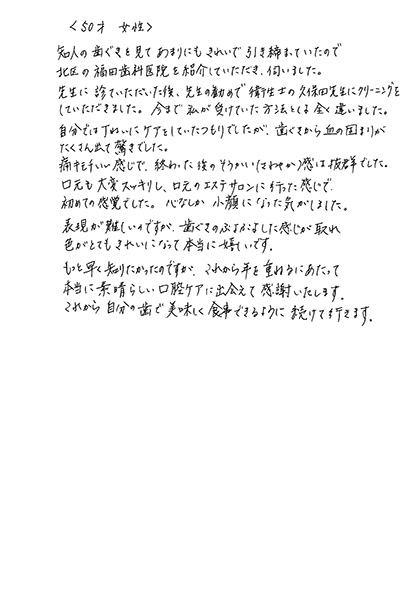 ＜50才 女性＞
知人の歯ぐきを見てあまりにもきれいで引き締まっていたので
北区の福田歯科医院を紹介していただき、伺いました。
先生に診ていただいた後、先生の勧めで衛生士の久保田先生にクリーニングを
していただきました。今まで私が受けていた方法とは全く違いました。
自分ではていねいにケアをしていたつもりでしたが、歯ぐきから血の固まりが
たくさん出て驚きでした。
痛キモチいい感じで、終わった後のそうかい(さわやか)感は抜群でした。
口元も大変スッキリし、口元のエステサロンに行った感じで
初めての感覚でした。心なしか小顔になった気がしました。
表現が難しいのですが、歯ぐきのぶよぶよした感じが取れ
色がとてもきれいになって本当に嬉しいです。
もっと早く知りたかったのですが、これから年を重ねるにあたって
本当に素晴らしい口腔ケアに出会えて感謝いたします。
これから自分の歯で美味しく食事できるように続けて行きます。